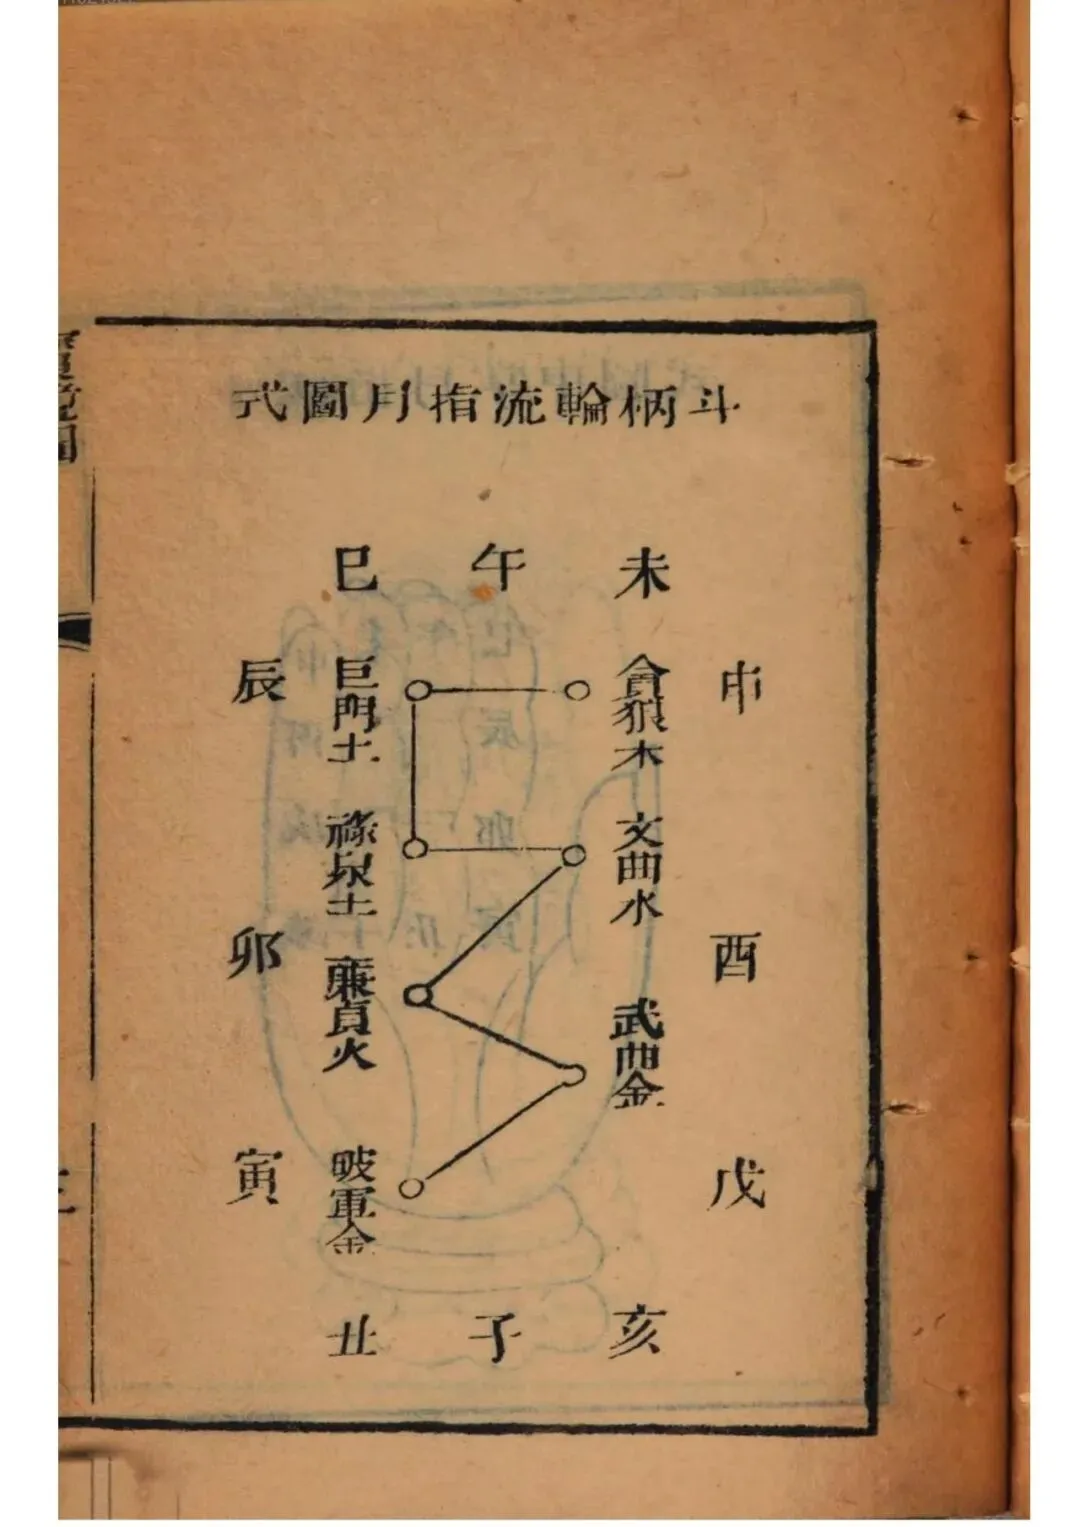 斗柄輪流指月圖式
未
午
巳
申
辰
貪狼木
巨門土
文曲水
祿泉土
酉
卯
武曲金
廉貞火
戌
寅
破軍金
亥
子
丑